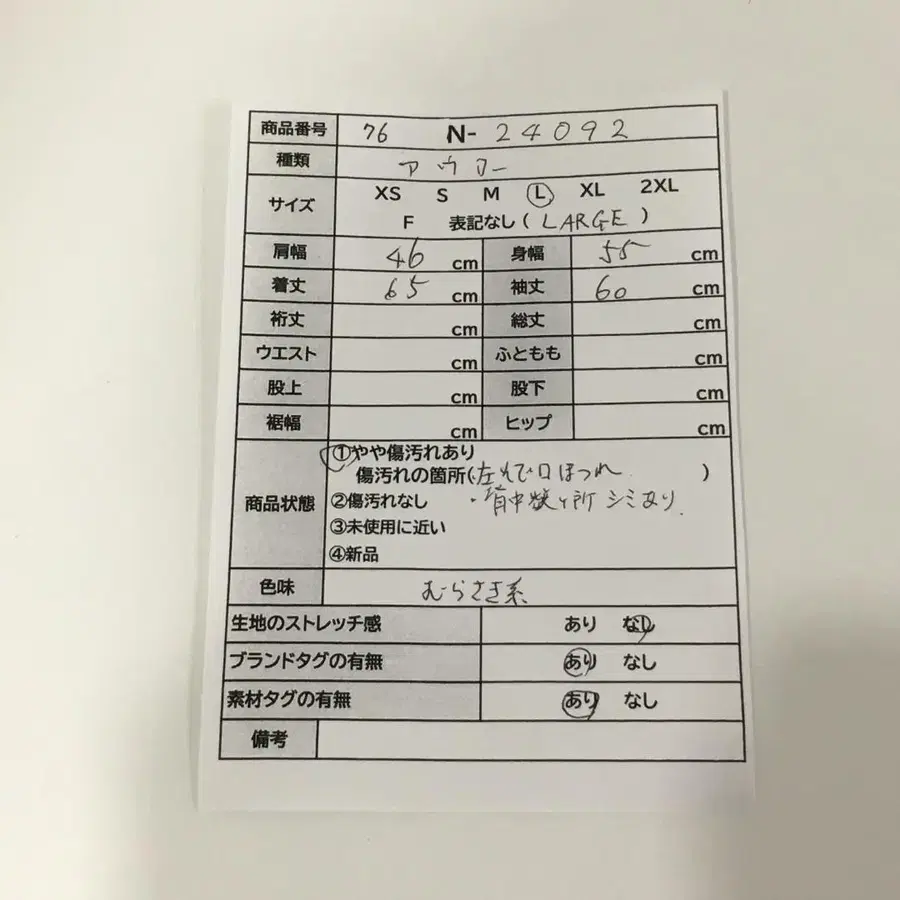 商品番号 76 N-24092
種類 アウター
サイズ XS S M L XL 2XL
F 表記なし(LARGE)
肩幅 46 cm 身幅 55 cm
着丈 65 cm 袖丈 60 cm
裄丈 cm 総丈 cm
ウエスト cm ふともも cm
股上 cm 股下 cm
裾幅 cm ヒップ cm
商品状態 ①やや傷汚れあり
傷汚れの箇所(・左そで口ほつれ )
②傷汚れなし ・背中数ヶ所 シミあり.
③未使用に近い
④新品
色味 むらさき系
生地のストレッチ感 あり なし
ブランドタグの有無 あり なし
素材タグの有無 あり なし
備考